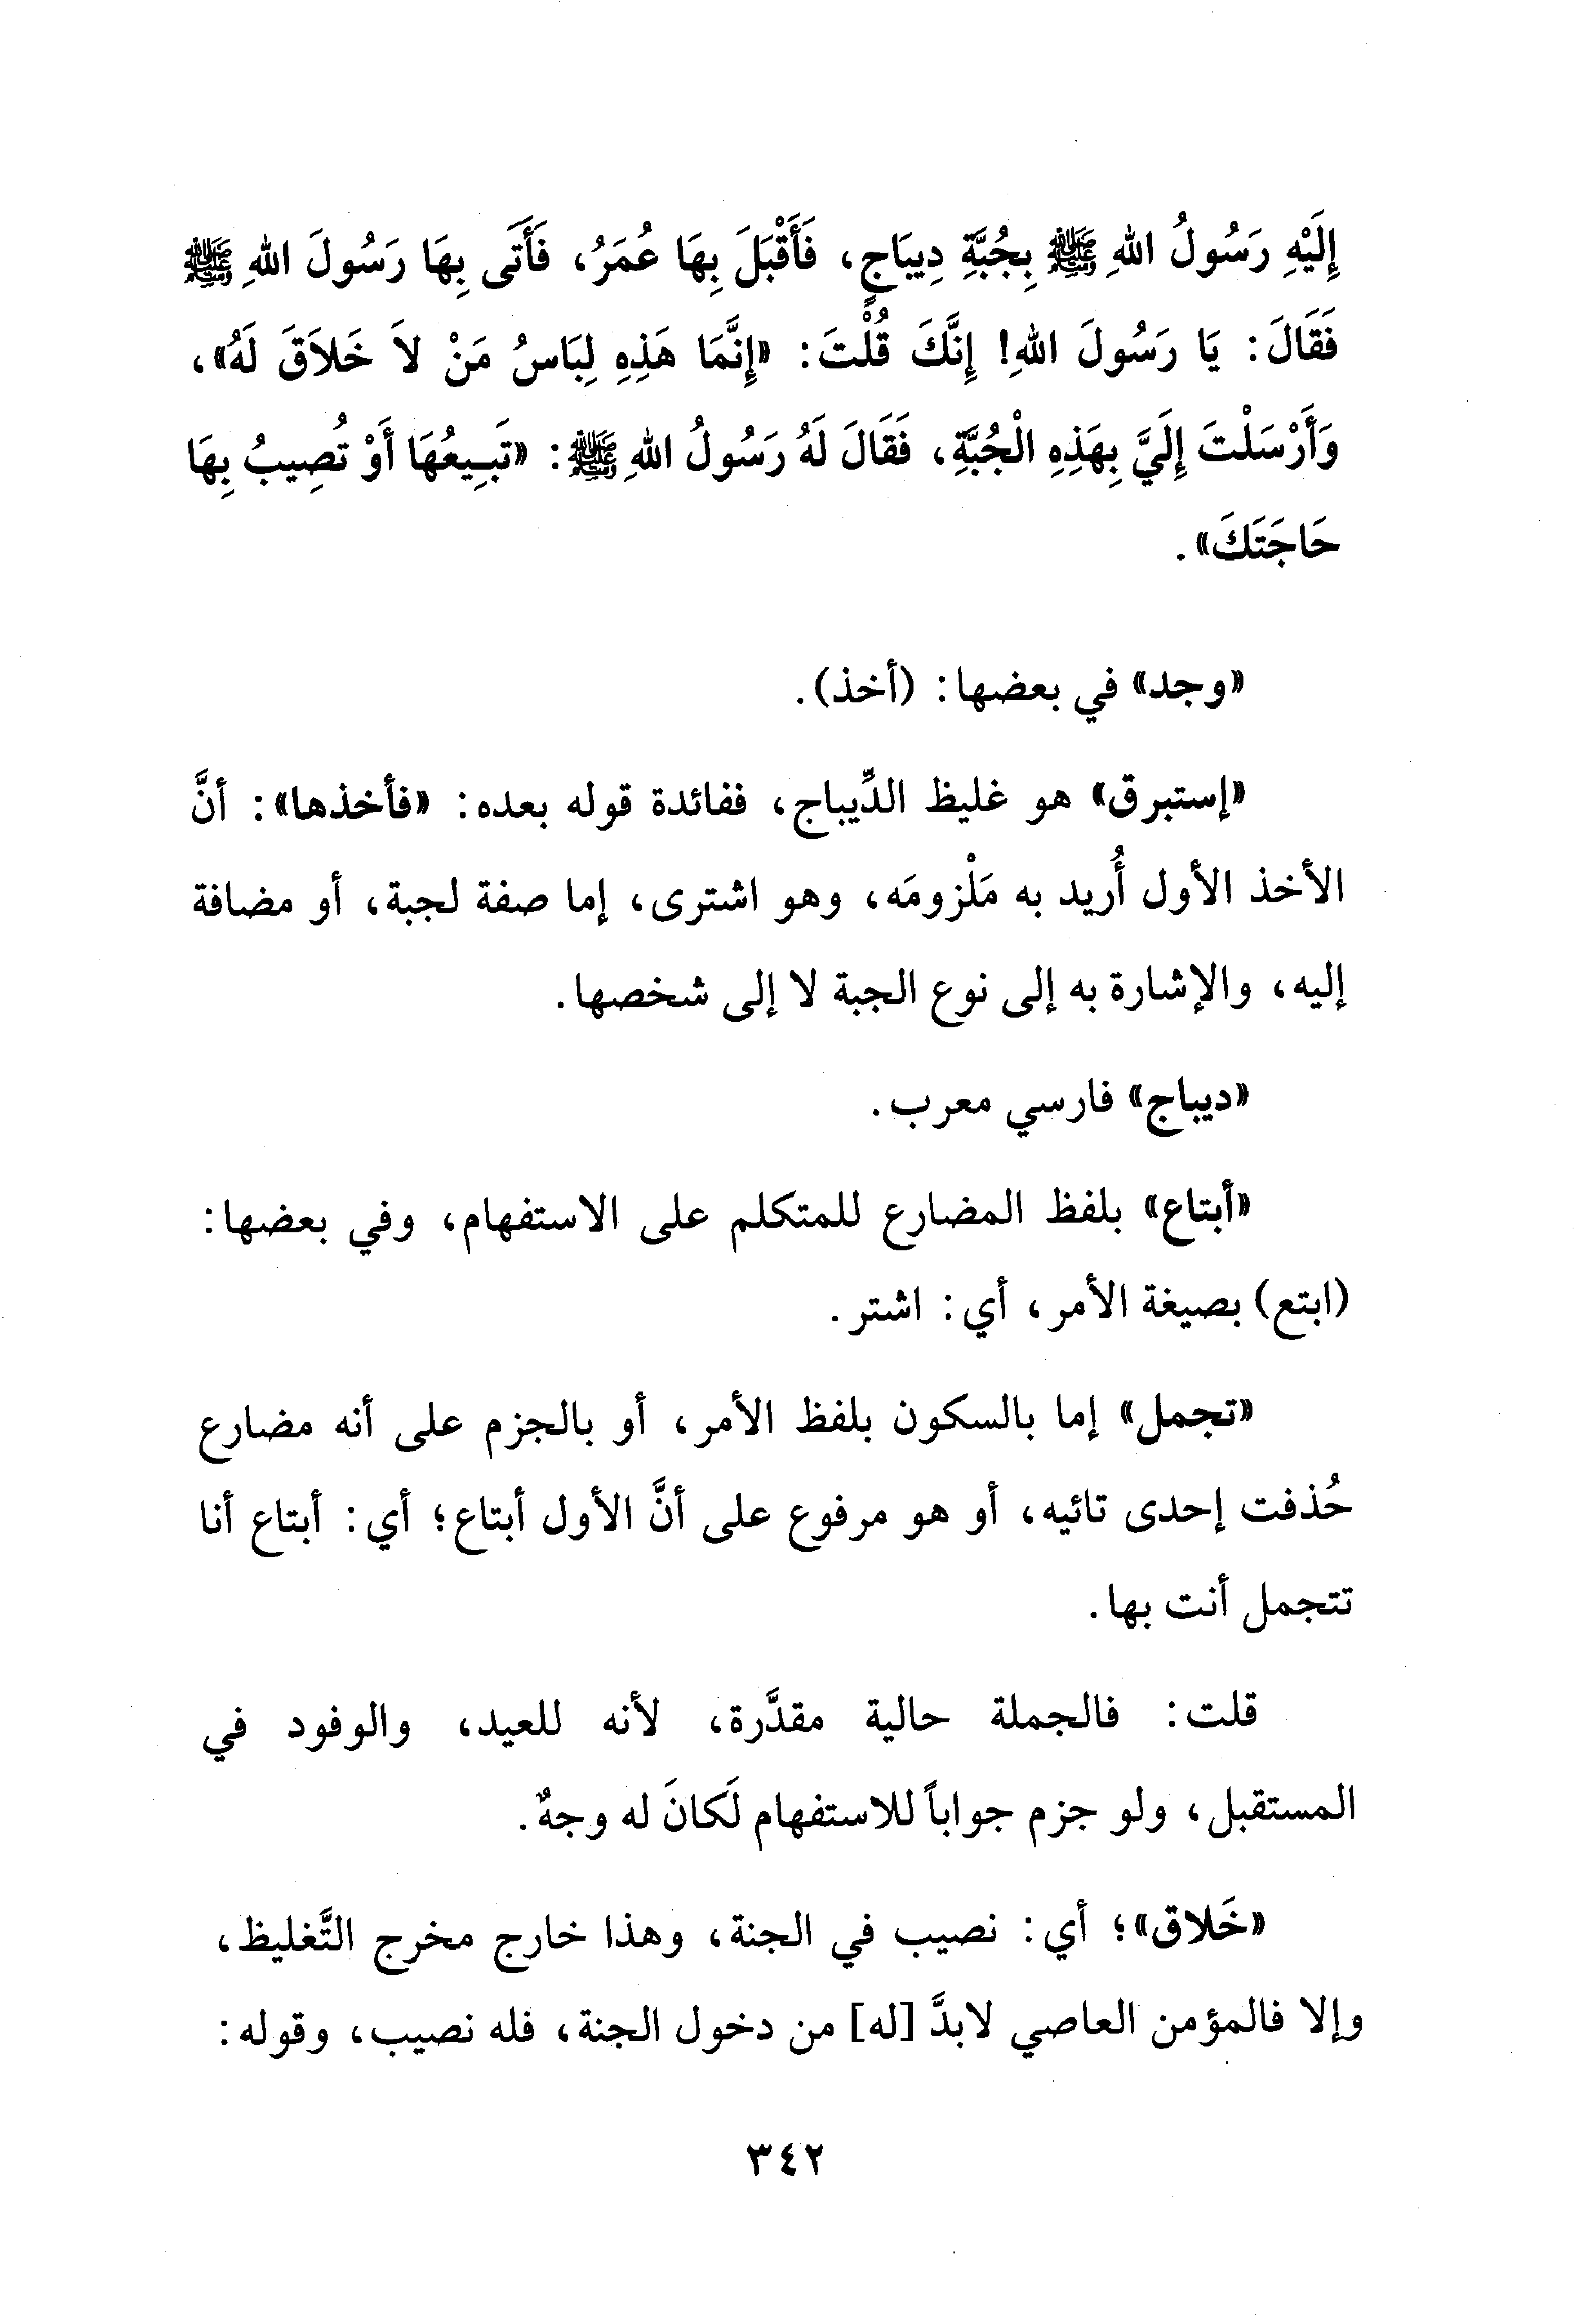 إِلَيْهِ رَسُولُ اللهِ ﷺ بِجُبَّةِ دِيبَاجٍ، فَأَقْبَلَ بِهَا عُمَرُ، فَأَتَى بِهَا رَسُولَ اللهِ ﷺ
فَقَالَ: يَا رَسُولَ اللهِ! إِنَّكَ قُلْتَ: «إِنَّمَا هَذِهِ لِبَاسُ مَنْ لاَ خَلاَقَ لَهُ»،
وَأَرْسَلْتَ إِلَيَّ بِهَذِهِ الْجُبَّةِ، فَقَالَ لَهُ رَسُولُ اللهِ ﷺ: «تَبِيعُهَا أَوْ تُصِيبُ بِهَا
حَاجَتَكَ».
«وجد» في بعضها: (أخذ).
«إستبرق» هو غليظ الدِّيباج، ففائدة قوله بعده: «فأخذها»: أنَّ
الأخذ الأول أُريد به مَلْزومَه، وهو اشترى، إما صفة لجبة، أو مضافة
إليه، والإشارة به إلى نوع الجبة لا إلى شخصها.
«ديباج» فارسي معرب.
«أبتاع» بلفظ المضارع للمتكلم على الاستفهام، وفي بعضها:
(ابتع) بصيغة الأمر، أي: اشتر.
«تجمل» إما بالسكون بلفظ الأمر، أو بالجزم على أنه مضارع
حُذفت إحدى تائيه، أو هو مرفوع على أنَّ الأول أبتاع؛ أي: أبتاع أنا
تتجمل أنت بها.
قلت: فالجملة حالية مقدَّرة، لأنه للعيد، والوفود في
المستقبل، ولو جزم جواباً للاستفهام لَكانَ له وجهٌ.
«خَلاق»؛ أي: نصيب في الجنة، وهذا خارج مخرج التَّغليظ،
وإلا فالمؤمن العاصي لابدَّ [له] من دخول الجنة، فله نصيب، وقوله:
٣٤٢